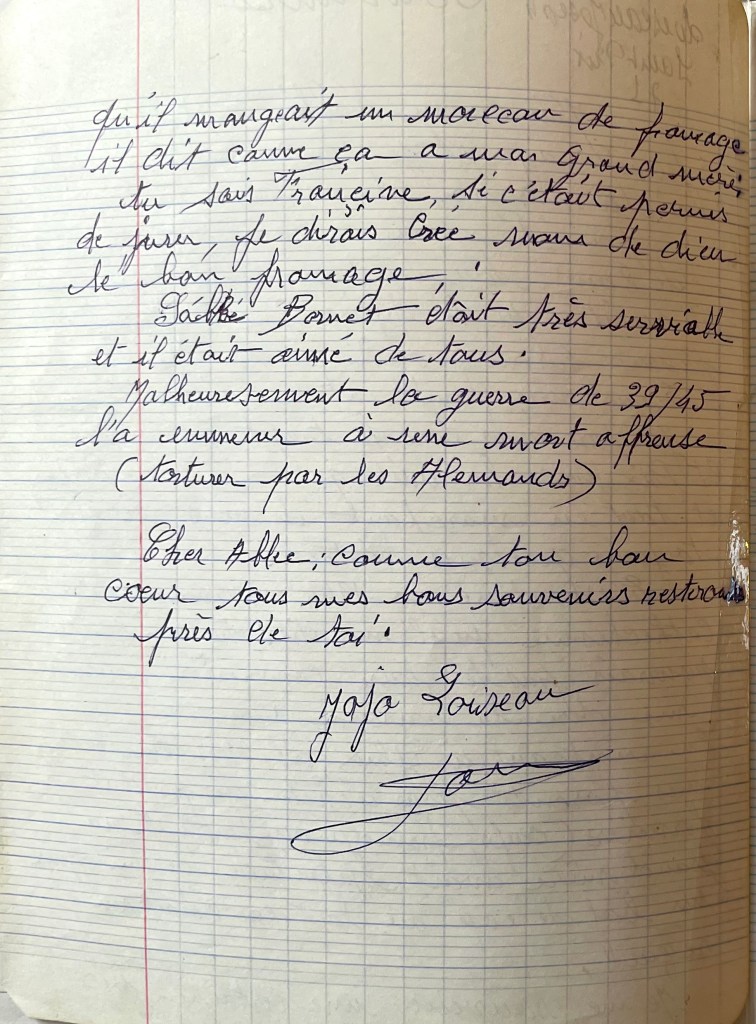 qu'il mangeait un morceau de fromage
il dit comme ça a ma Grand mère;
tu sais Francine, si c'était permis
de jurer, je dirais Cré nom de dieu
le bon fromage !
L'abbé Bornet était très serviable
et il était aimé de tous.
Malheuresement la guerre de 39/45
l'a emmener à une mort affreuse
(torturer par les Alemands)
Cher Abbe; comme ton bon
coeur tous mes bons souvenirs restiront
près de toi.
Jojo Loiseau